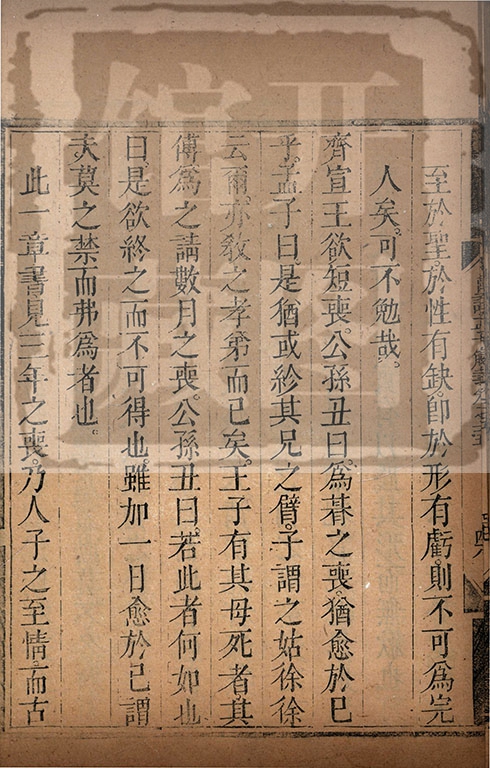 至於聖於性有缺即於形有虧則不可為完
人矣可不勉哉
齊宣王欲短喪公孫丑曰為朞之喪猶愈於已
乎孟子曰是猶或紾其兄之臂子謂之姑徐徐
云爾亦教之孝弟而已矣王子有其母死者其
傅為之請數月之喪公孫丑曰若此者何如也
曰是欲終之而不可得也雖加一日愈於已謂
夫莫之禁而弗為者也
此一章書見三年之喪乃人子之至情而古